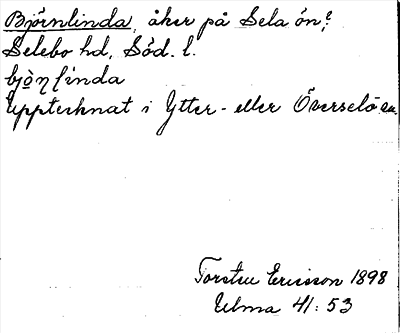 Björnlinda, åker på Sela ön?
Selebo hd, Söd. l.
bjò̱ɳlinda
Upptecknat i Ytter- eller Överselö sn.
Torsten Ericsson 1898
Ulma 41:53